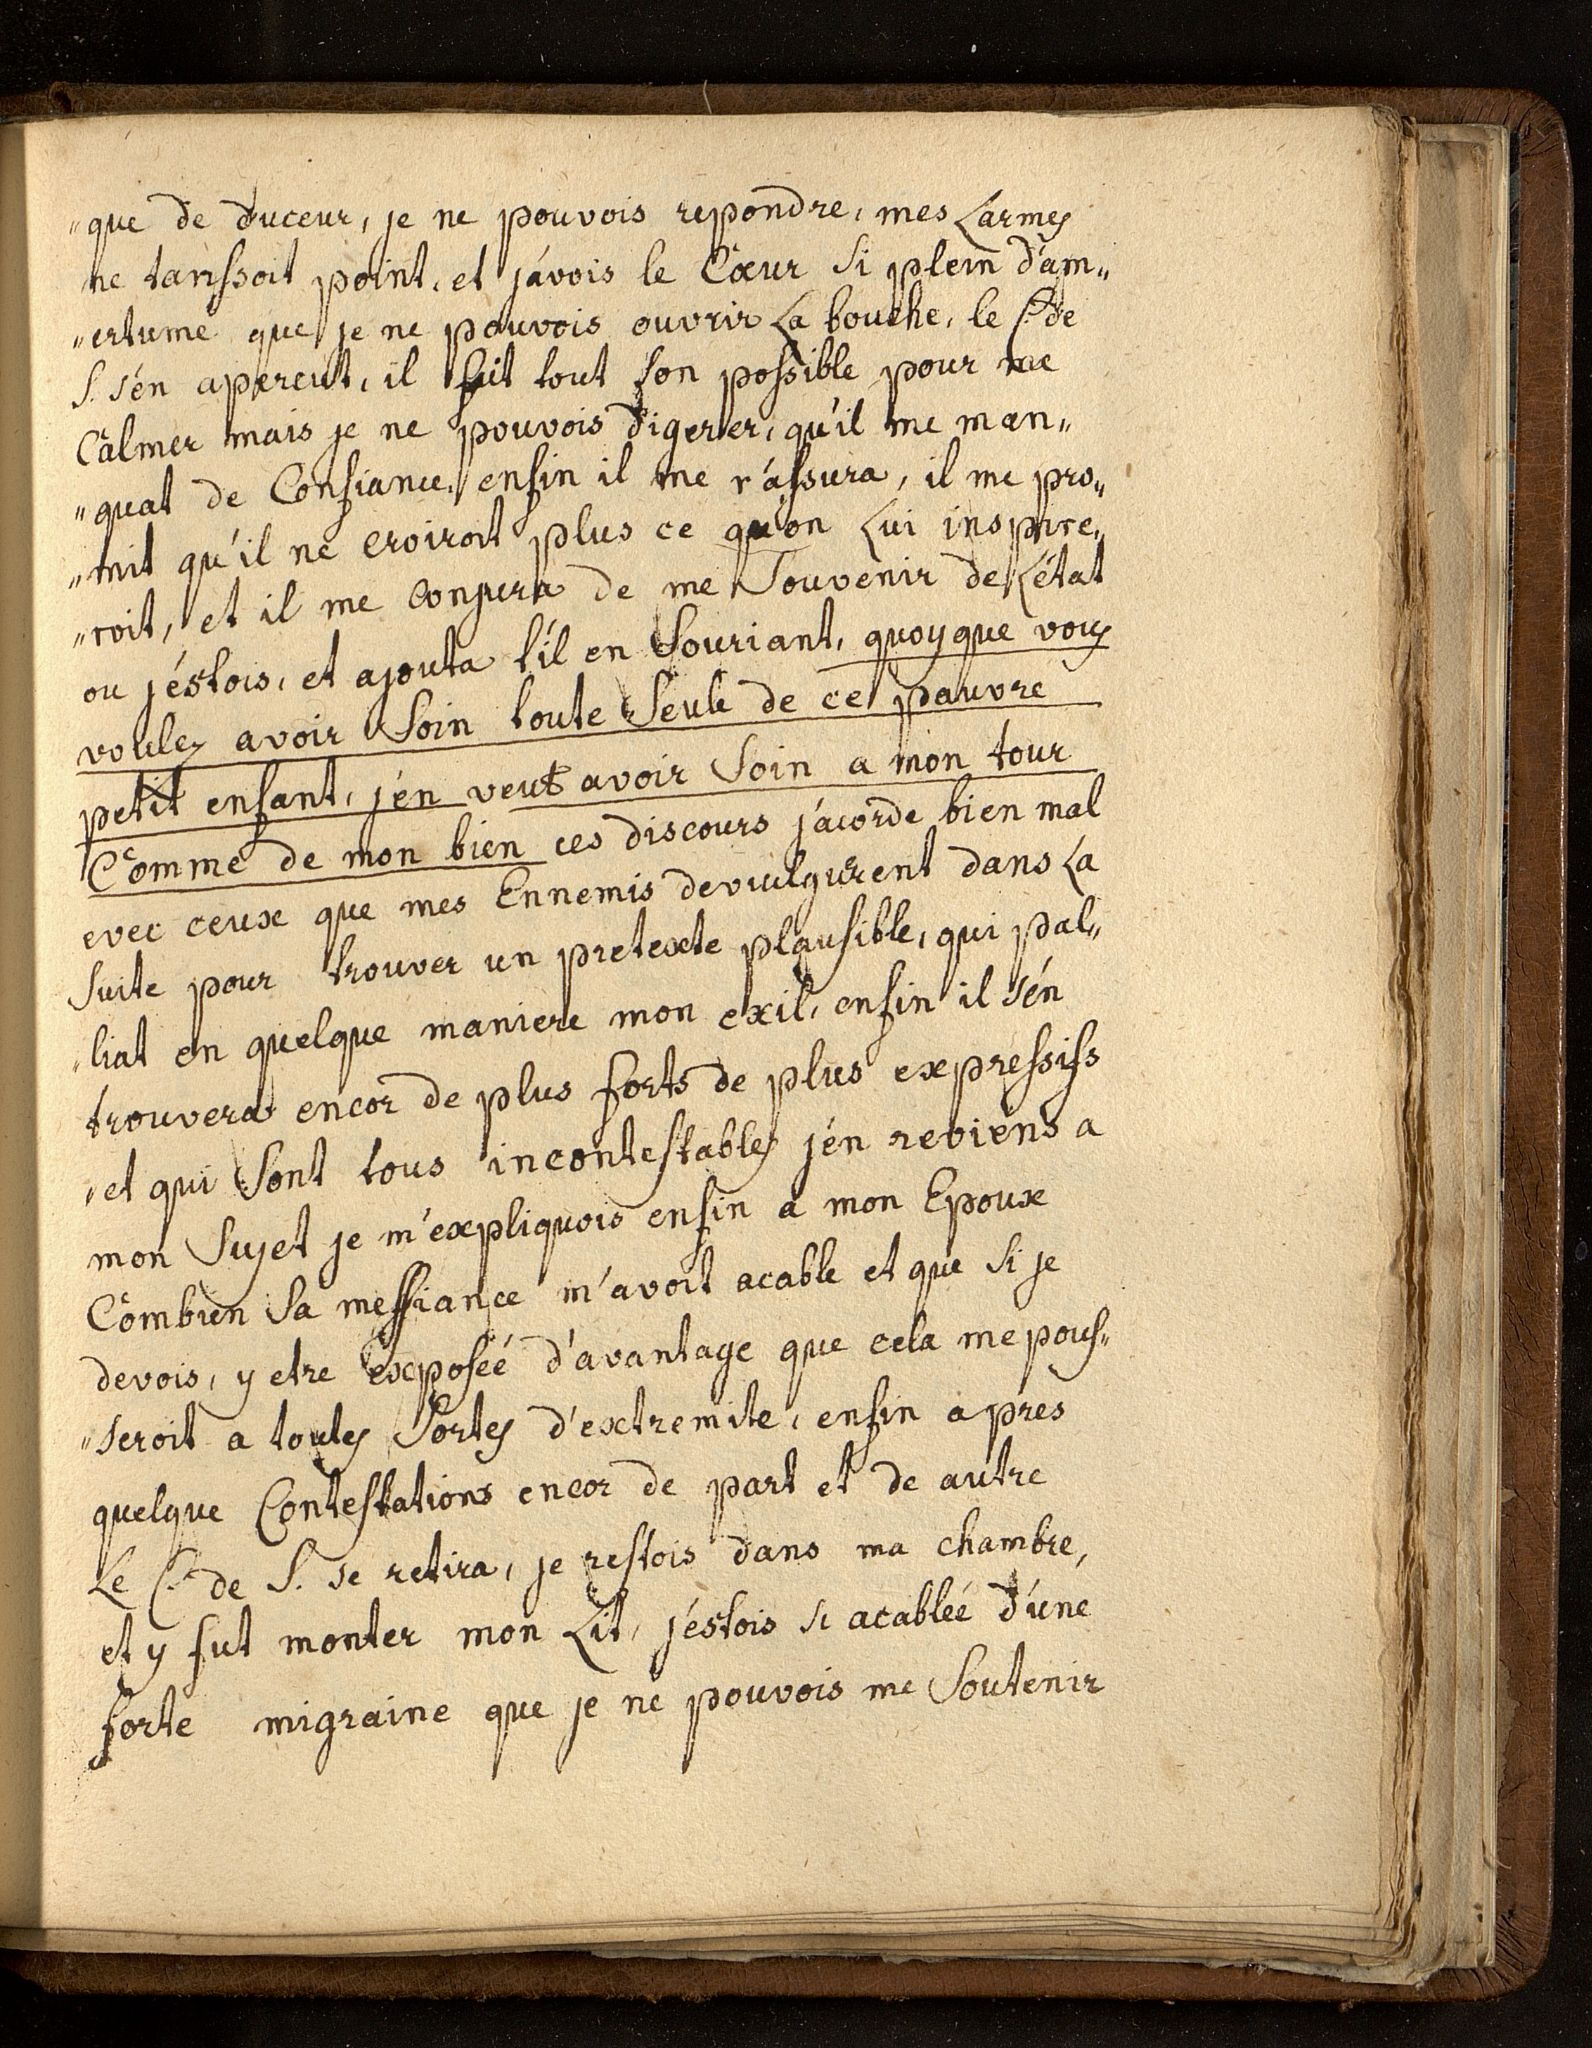 "que de duceur, je ne pouvois repondre, mes Larmes
ne tarissoit point, et j'avois le Cœur si plein d'am„
„ertume que je ne pouvois ouvrir La bouche, le C. de
S. s'én aperçeut, il fit tout son possible pour me
Calmer mais je ne pouvois digerer, qu'il me man„
„quat de Confiance, enfin il me r'assura, il me pro„
„mit qu'il ne croiroit plus ce qu'on Lui inspire„
„roit, et il me conjura de me Souvenir de L'état
ou j'éstois, et ajouta t'il en Souriant, quoyque vous
voulez avoir Soin toute Seule de ce pauvre
petit enfant, j'én veut avoir Soin a mon tour
Comme de mon bien ces discours j'acorde bien mal
evec ceux que mes Ennemis devulgurent dans La
Suite pour trouver un pretexte plausible, qui pal„
„liat en quelque maniere mon exil, enfin il s'én
trouvera encor de plus forts de plus expressifs
„et qui Sont tous incontestables j'én reviens a
mon Sujet je m'expliquois enfin a mon Epoux
Combien Sa meffiance m'avoit acable et que si je
devois, y etre exposéé d'avantage que cela me pous„
„seroit a toutes Sortes d'extremite, enfin apres
quelque Contestations encor de part et de autre
Le C. de S. se retira, je restois dans ma chambre,
et y fut monter mon Lit, j'éstois si acabléé d'une
forte migraine que je ne pouvois me Soutenir